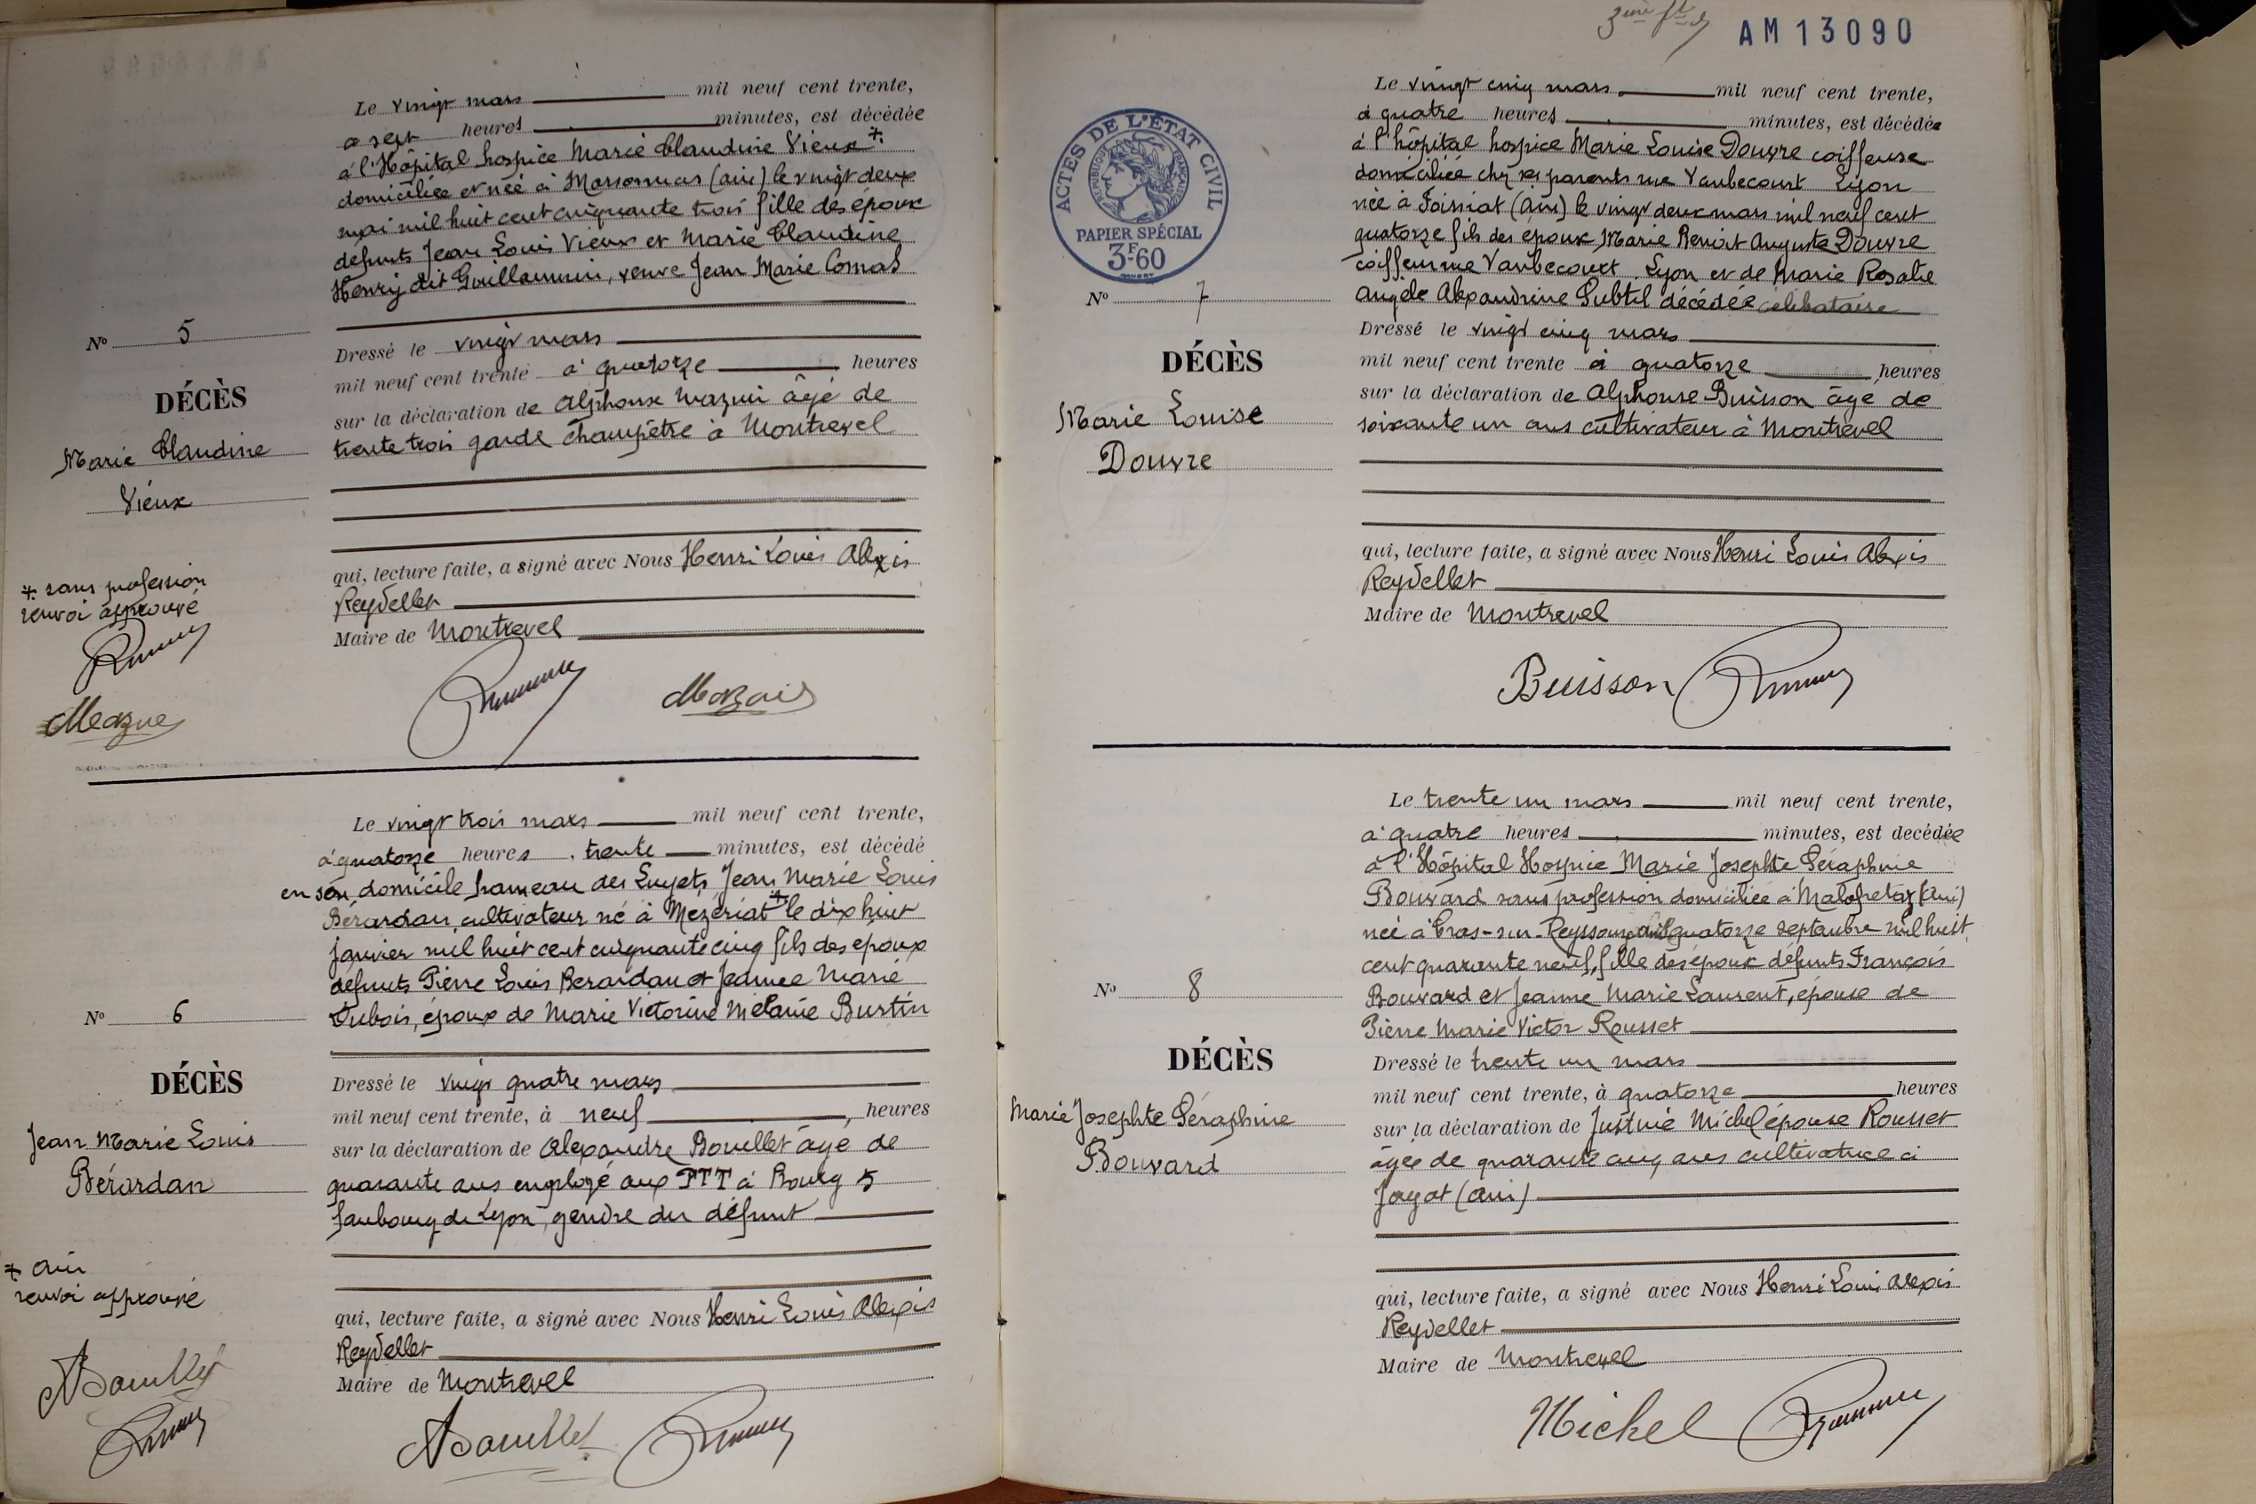 Le vingt mars mil neuf cent trente,
a sept heures minutes, est décédée
à l'Hôpital hospice Marie Claudine Vieux +
domiciliée et née à Marsonnas (ain) le vingt deux
mai mil huit cent cinquante trois fille des époux
défunts Jean Louis Vieux et Marie Claudine
Henry dit Guillaumin, veuve Jean Marie Comas
N° 5
DÉCÈS
Marie Claudine
Vieux
Dressé le vingt mars
mil neuf cent trente à quatorze heures
sur la déclaration de Alphonse Mazuir âgé de
trente trois garde champêtre à Montrevel
qui, lecture faite, a signé avec Nous Henri Louis Alexis
Reydellet
Maire de Montrevel
+ sans profession
renvoi approuvé
Le vingt trois mars mil neuf cent trente,
à quatorze heures trente minutes, est décédé
en son domicile hameau des Luyets Jean Marie Louis
Bérardan, cultivateur né à Mezériat + le dix huit
janvier mil huit cent cinquante cinq fils des époux
défunts Pierre Louis Berardan et Jeanne Marie
Dubois, époux de Marie Victorine Mélanie Burtin
N° 6
DÉCÈS
Jean Marie Louis
Bérardan
Dressé le vingt quatre mars
mil neuf cent trente, à neuf heures
sur la déclaration de Alexandre Bouillet âgé de
quarante ans employé aux PTT à Bourg 5
faubourg de Lyon, gendre du défunt
+ ain
renvoi approuvé
qui, lecture faite, a signé avec Nous Henri Louis Alexis
Reydellet
Maire de Montrevel
ABouillet
ABouillet
AM13090
Le vingt cinq mars mil neuf cent trente,
à quatre heures minutes, est décédée
à l'hôpital hospice Marie Louise Douvre coiffeuse
domiciliée chez ses parents rue Vaubecourt Lyon
née à Foissiat (Ain) le vingt deux mars mil neuf cent
quatorze fils des époux Marie Benoit Auguste Douvre
coiffeur rue Vaubecourt Lyon et de Marie Rosalie
Angèle Alexandrine Subtil décédée célibataire
ACTES DE L'ETAT CIVIL
REPUBLIQUE FRANÇAISE
PAPIER SPÉCIAL
3F60
N° 7
DÉCÈS
Marie Louise
Douvre
Dressé le vingt cinq mars
mil neuf cent trente à quatorze heures
sur la déclaration de Alphonse Buisson âgé de
soixante un ans cultivateur à Montrevel
qui, lecture faite, a signé avec Nous Henri Louis Alexis
Reydellet
Maire de Montrevel
Buisson
Le trente un mars mil neuf cent trente,
à quatre heures minutes, est decédée
à l'Hôpital Hospice Marie Josephte Séraphine
Bouvard sans profession domiciliée à Malafretaz (Ain)
née à Cras-sur-Reyssouze quatorze septembre mil huit
cent quarante neuf, fille des époux défunts François
Bouvard et Jeanne Marie Laurent, épouse de
Pierre Marie Victor Rousset
N° 8
DÉCÈS
Marie Josephte Séraphine
Bouvard
Dressé le trente un mars
mil neuf cent trente, à quatorze heures
sur la déclaration de Justine Michel épouse Rousset
âgée de quarante cinq ans cultivatrice à
Jayat (ain)
qui, lecture faite, a signé avec Nous Henri Louis Alexis
Reydellet
Maire de Montrevel
Michel